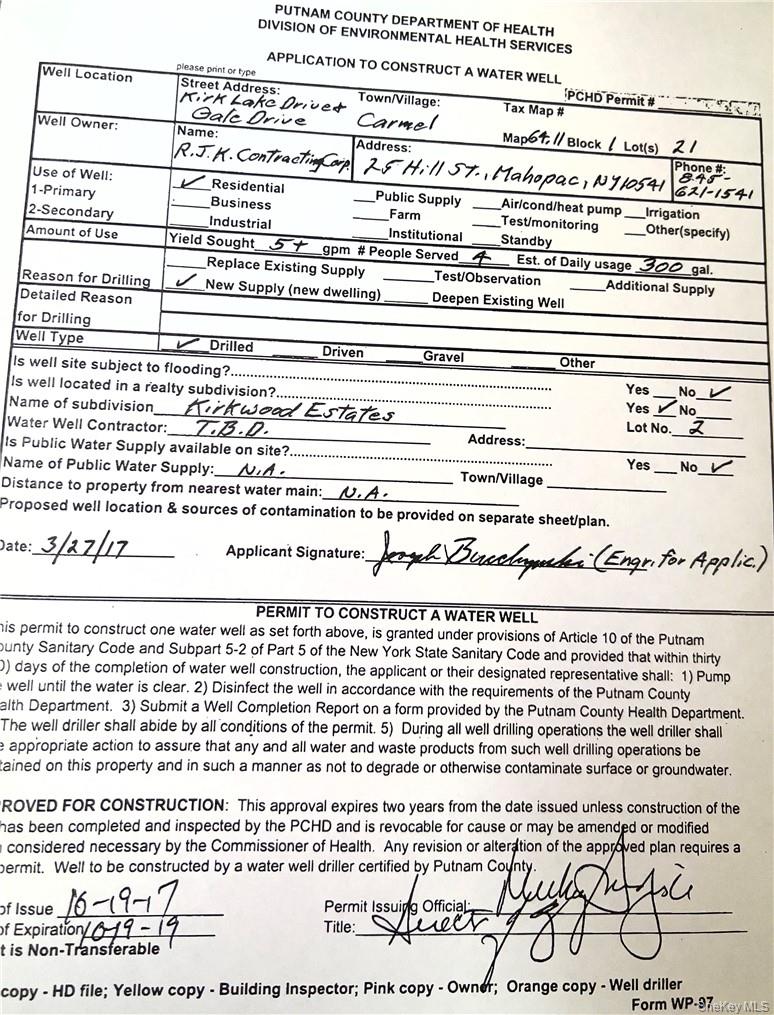 PUTNAM COUNTY DEPARTMENT OF HEALTH
DIVISION OF ENVIRONMENTAL HEALTH SERVICES
APPLICATION TO CONSTRUCT A WATER WELL
please print or type
PCHD Permit #
Well Location
Street Address: Town/Village: Tax Map #
Kirk Lake Drive &
Gale Drive Carmel Map 64.11 Block 1 Lot(s) 21
Well Owner: Name: Address: Phone #:
R.J.K. Contracting Corp. 25 Hill St., Mahopac, NY 10541 845-
621-1541
Use of Well: ✓ Residential Public Supply Air/cond/heat pump Irrigation
1-Primary Business Farm Test/monitoring Other(specify)
2-Secondary Industrial Institutional Standby
Amount of Use Yield Sought 5+ gpm # People Served 4 Est. of Daily usage 300 gal.
Replace Existing Supply Test/Observation Additional Supply
Reason for Drilling ✓ New Supply (new dwelling) Deepen Existing Well
Detailed Reason
for Drilling
Well Type ✓ Drilled Driven Gravel Other
Is well site subject to flooding? Yes No ✓
Is well located in a realty subdivision? Yes ✓ No
Name of subdivision Kirkwood Estates Lot No. 2
Water Well Contractor: T.B.D. Address:
Is Public Water Supply available on site? Yes No ✓
Name of Public Water Supply: N.A. Town/Village
Distance to property from nearest water main: N.A.
Proposed well location & sources of contamination to be provided on separate sheet/plan.
Date: 3/27/17 Applicant Signature: Joseph (Engr. for Applic.)
PERMIT TO CONSTRUCT A WATER WELL
his permit to construct one water well as set forth above, is granted under provisions of Article 10 of the Putnam
ounty Sanitary Code and Subpart 5-2 of Part 5 of the New York State Sanitary Code and provided that within thirty
0) days of the completion of water well construction, the applicant or their designated representative shall: 1) Pump
e well until the water is clear. 2) Disinfect the well in accordance with the requirements of the Putnam County
alth Department. 3) Submit a Well Completion Report on a form provided by the Putnam County Health Department.
The well driller shall abide by all conditions of the permit. 5) During all well drilling operations the well driller shall
e appropriate action to assure that any and all water and waste products from such well drilling operations be
tained on this property and in such a manner as not to degrade or otherwise contaminate surface or groundwater.
ROVED FOR CONSTRUCTION: This approval expires two years from the date issued unless construction of the
has been completed and inspected by the PCHD and is revocable for cause or may be amended or modified
considered necessary by the Commissioner of Health. Any revision or alteration of the approved plan requires a
permit. Well to be constructed by a water well driller certified by Putnam County.
of Issue 10-19-17 Permit Issuing Official:
of Expiration 10-19-19 Title:
t is Non-Transferable
copy - HD file; Yellow copy - Building Inspector; Pink copy - Owner; Orange copy - Well driller
Form WP-97
OneKey MLS